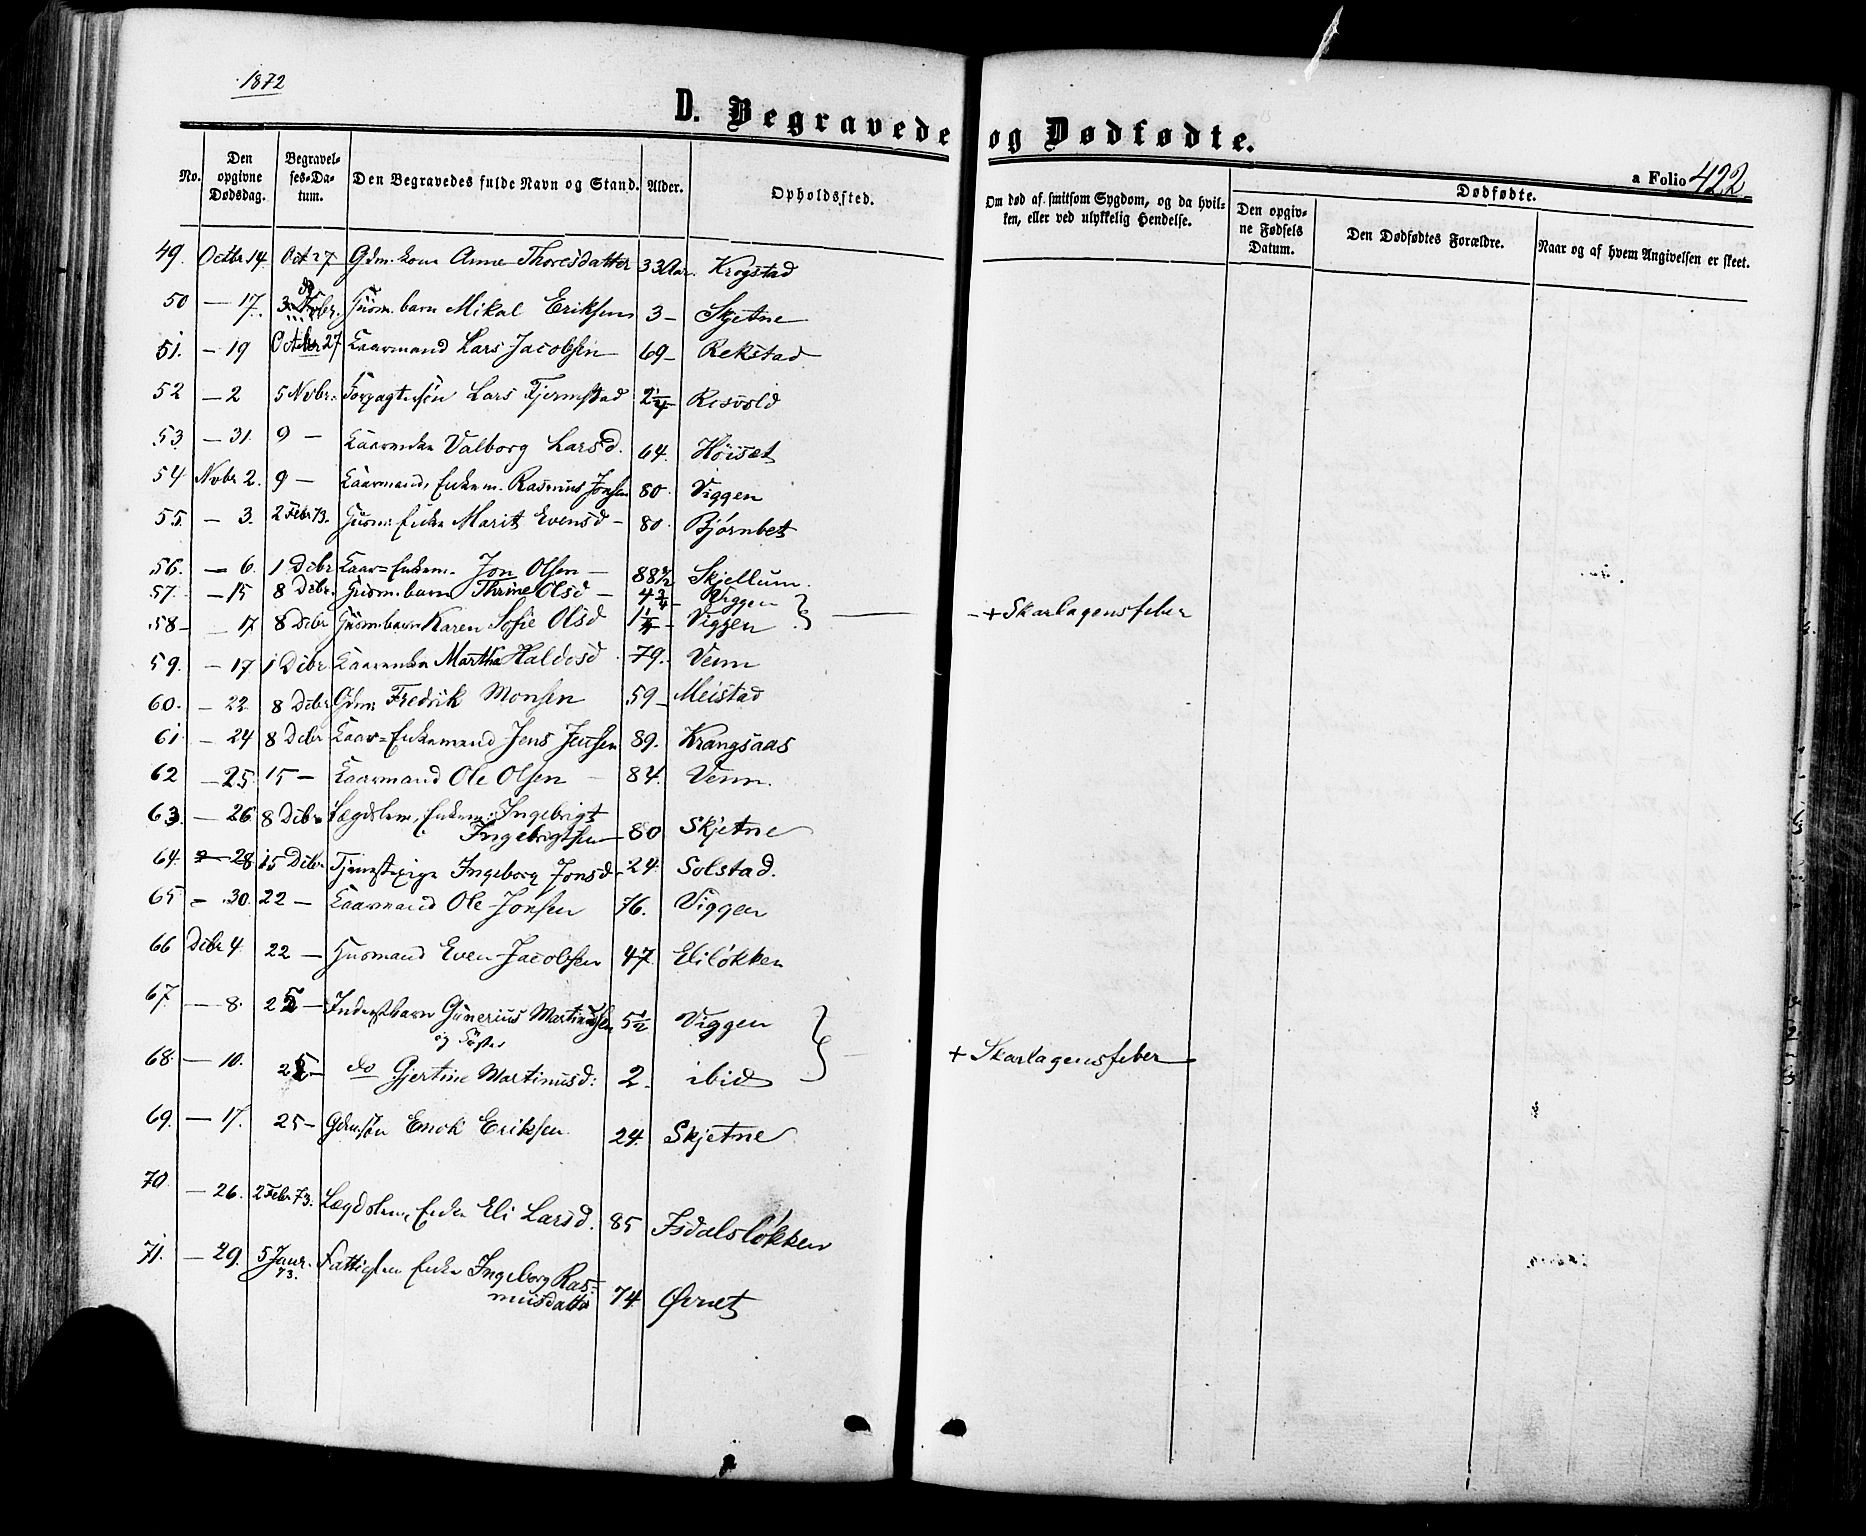 1872
D. Begravede og Dødfødte.
a Folio 422
No. Den opgivne Dødsdag. Begravelses-Datum. Den Begravedes fulde Navn og Stand. Alder. Opholdssted. Om død af smitsom Sygdom, og da hvilken, eller ved ulykkelig Hendelse. Dødfødte. Den opgivne Fødsels Datum. Den Dødfødtes Forældre. Naar og af hvem Angivelsen er skeet.
49. Octbr. 14. Oct 27 Gdm. kone Anne Thoresdatter 33 Aar. Krogstad
50 — 17. Husm. barn Mikal Eriksen 3 — Skjetne
51. — 19 Octbr 27 Kaarmand Lars Jacobsen 69 — Rekstad
52 — 2 5 Novbr. Forpagtersøn Lars Fjermstad 2 1/4 Risvold
53. — 31. 9 — Kaarenke Valborg Larsd. 64. Höisæt
54 Novbr 2. 9 — Kaarmand, Enkem. Rasmus Jonsen 80. Viggen
55. — 3. 2 Febr 73. Husm. Enke Marit Evensd — 80. Bjørnbet
56. — 6. 1 Dcbr Kaar= Enkem. Jon Olsen — 88 1/2 Skjellum.
57. — 15 8 Dcbr. Husm. barn Thrine Olsd — 4 3/4 Viggen
58 — — 17 8 Dcbr Husm. barn Karen Sofie Olsd 1 1/4 — Viggen } — + Skarlagensfeber
59. — 17. 1 Dcbr. Kaarenke Martha Haldosd 79. Venn
60. — 22 8 Dcbr Gdm. Fredrik Monsen 59 — Meistad
61. — 24 8 Dcbr Kaar= Enkemand Jens Jensen 89. Krangsaas
62 — 25. 15 — Kaarmand Ole Olsen — 84. Venn.
63. — 26 8 Dcbr Lægdslem, Enkem. Ingebrigt
Ingebrigtsen 80 Skjetne
64. — 28 15 Dcbr Tjenestepige Ingeborg Jonsd. 24. Solstad.
65 — 30. 22 — Kaarmand Ole Jonsen 76. Viggen
66 Dcbr 4. 22 — Husmand Even Jacobsen 47. Eliløkken
67. — 8. 25 — Inderstbarn Gunerius Martinussen 5 1/2 Viggen
og Søster
68. — 10. 25 — do Gjertine Martinusd: 2. ibid } — + Skarlagensfeber
69. — 17. 25 — Gdmsøn Enok Eriksen 24. Skjetne
70 — 26. 2 Febr 73. Lægdslem, Enke Eli Larsd. 85 Isdalsløkken
71. — 29. 5 Janr. 73. Fattiglem Enke Ingeborg Ras=
musdatter 74. Øvnet